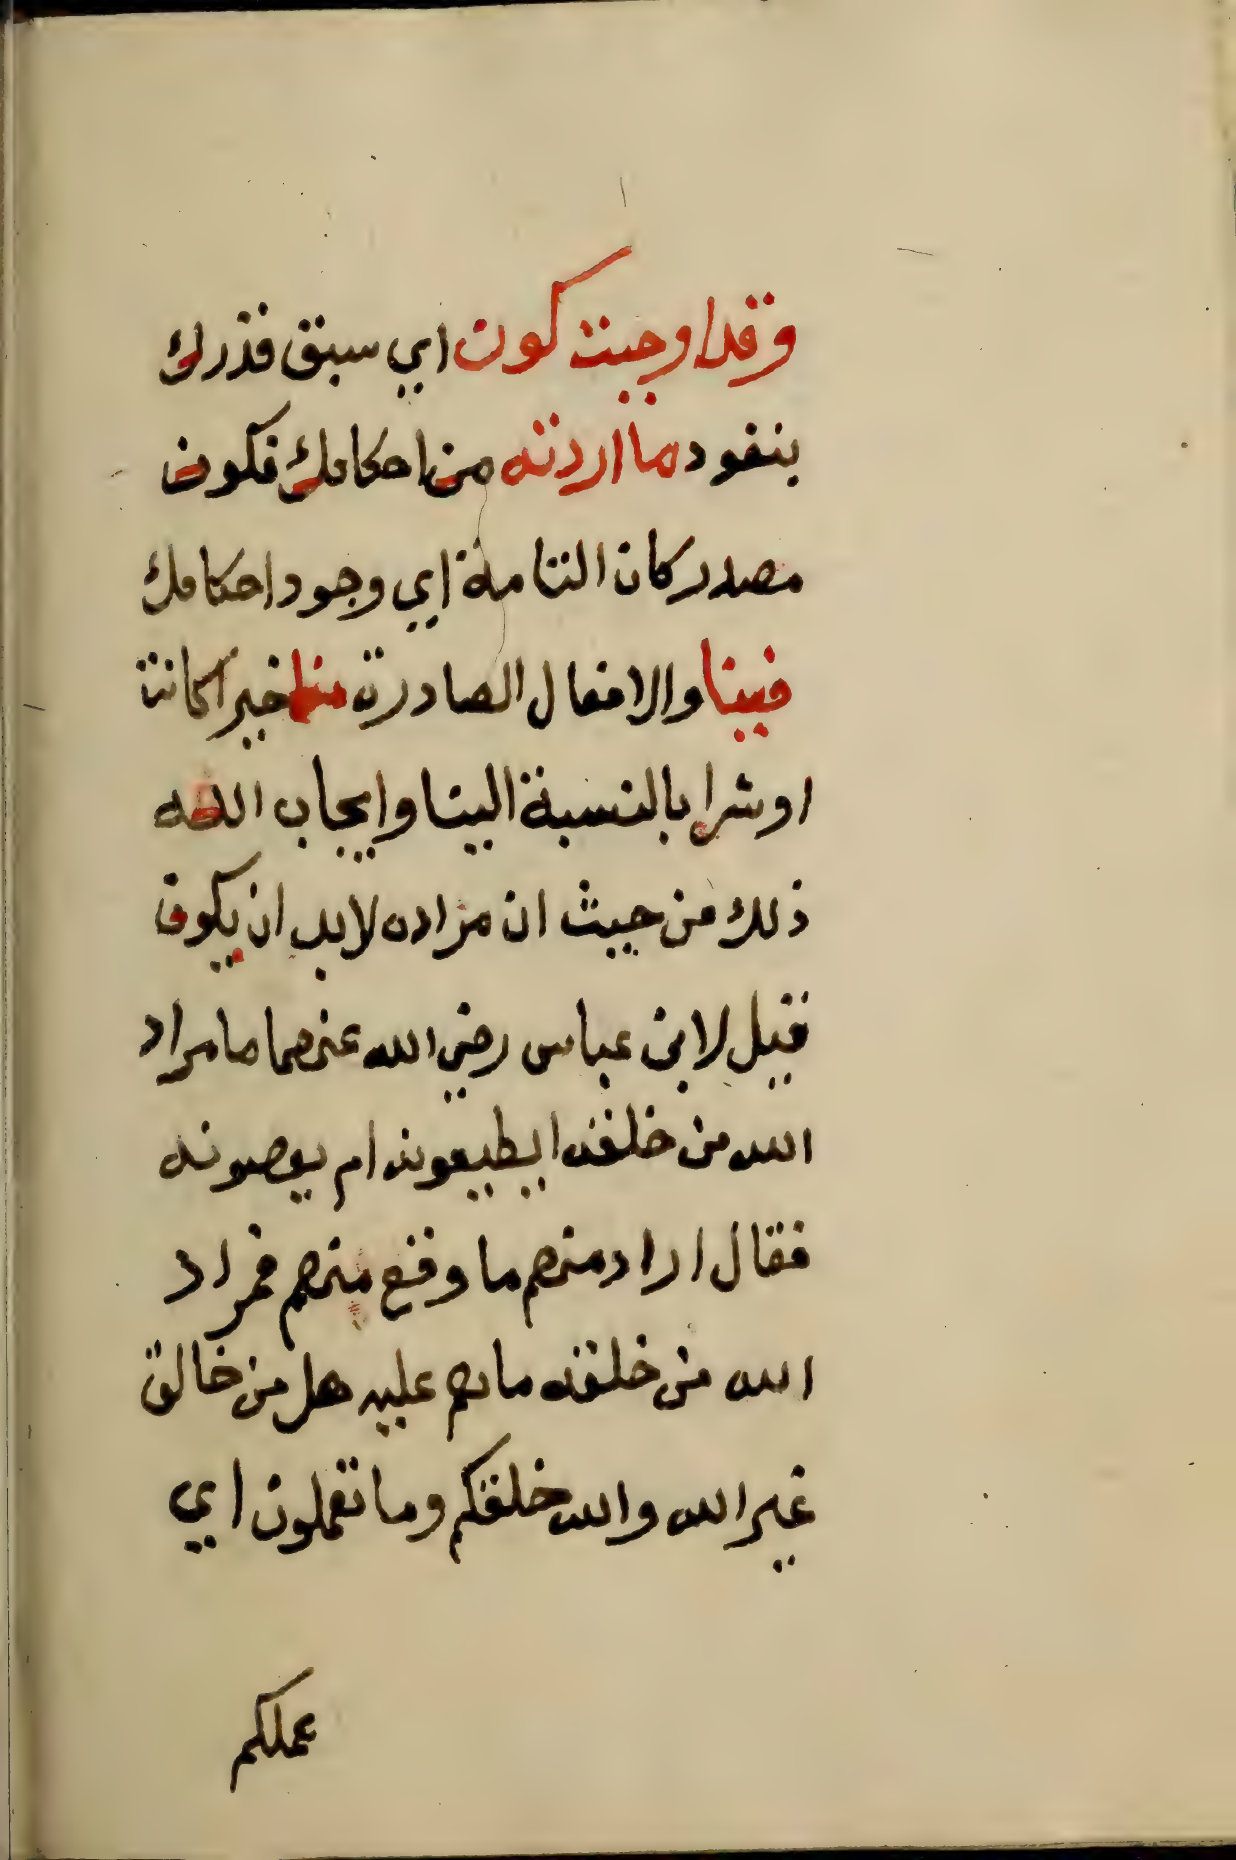 وقد اوجبت كون اي سبق قدرك
بنفود ما اردته من احكامك فكون
مصدر كان التامة اي وجود احكامك
فينا والافعال الصادرة منا خيرا كانت
او شرا بالنسبة الينا وايجاب الله
ذلك من حيث ان مراده لابد ان يكون
قيل لابن عباس رضي الله عنهما ما مراد
الله من خلقه ايطيعونه ام يعصونه
فقال اراد منهم ما وقع منهم فمراد
الله من خلقه ما هم عليه هل من خالق
غير الله والله خلقكم وما تعملون اي
عملكم